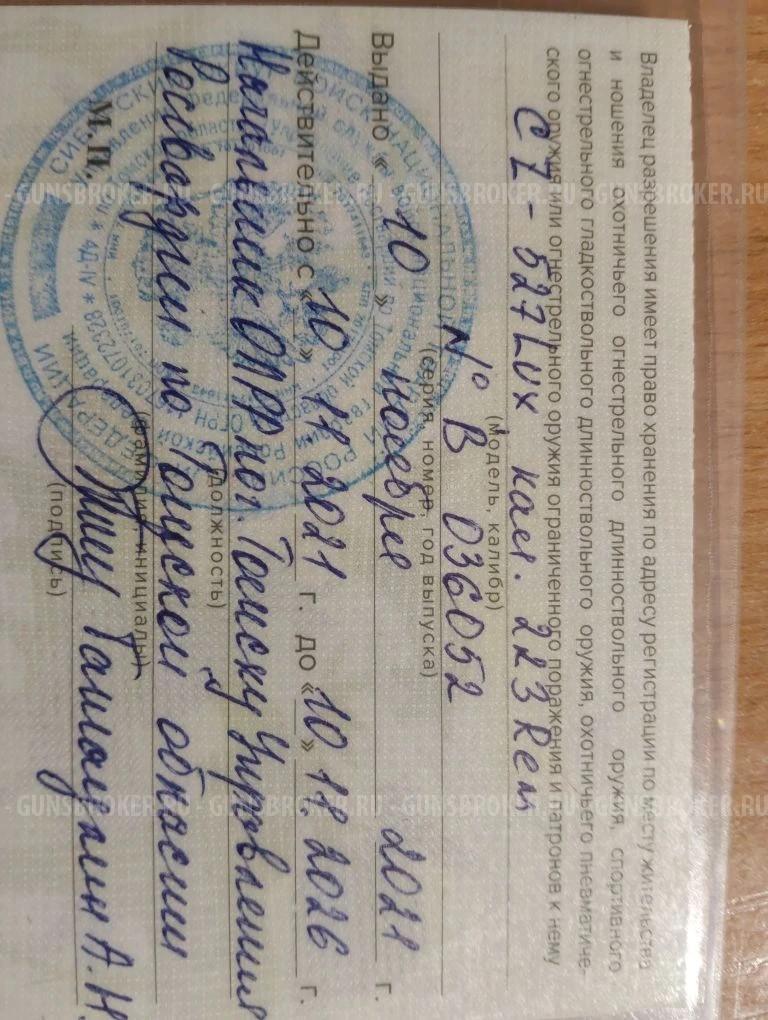 Владелец разрешения имеет право хранения по адресу регистрации по месту жительства
и ношения охотничьего огнестрельного длинноствольного оружия, спортивного
огнестрельного гладкоствольного длинноствольного оружия, охотничьего пневматиче-
ского оружия или огнестрельного оружия ограниченного поражения и патронов к нему
CZ-527Lux кал. 223Rem
(модель, калибр)
№ В 036052
(серия, номер, год выпуска)
Выдано « 10 » ноября 2021 г.
Действительно с « 10 » 11 2021 г. до « 10 » 11. 2026 г.
Начальник ОЛРР по г. Томску Управления
(должность)
Росгвардии по Томской области
(фамилия, инициалы)
А.Н.
М.П.
(подпись)
- GUNSBROKER.RU - GUNSBROKER.RU - GUNSBROKER.RU - GUNSBROKER.RU
- GUNSBROKER.RU - GUNSBROKER.RU - GUNSBROKER.RU - GUNSBROKER.RU